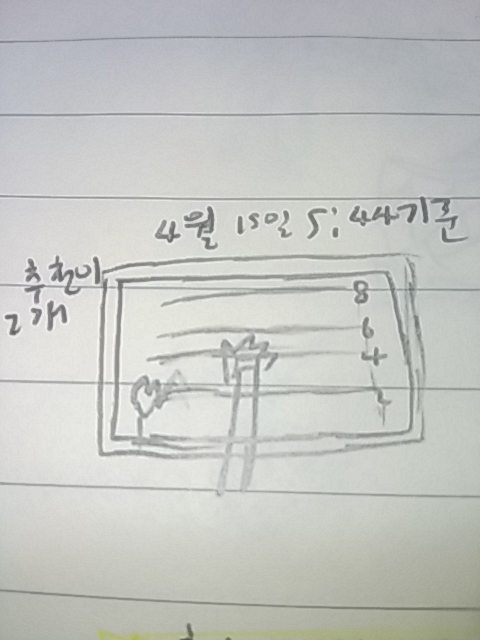 4월 15일 5:44기준
추천이
2개
8
6
4
2